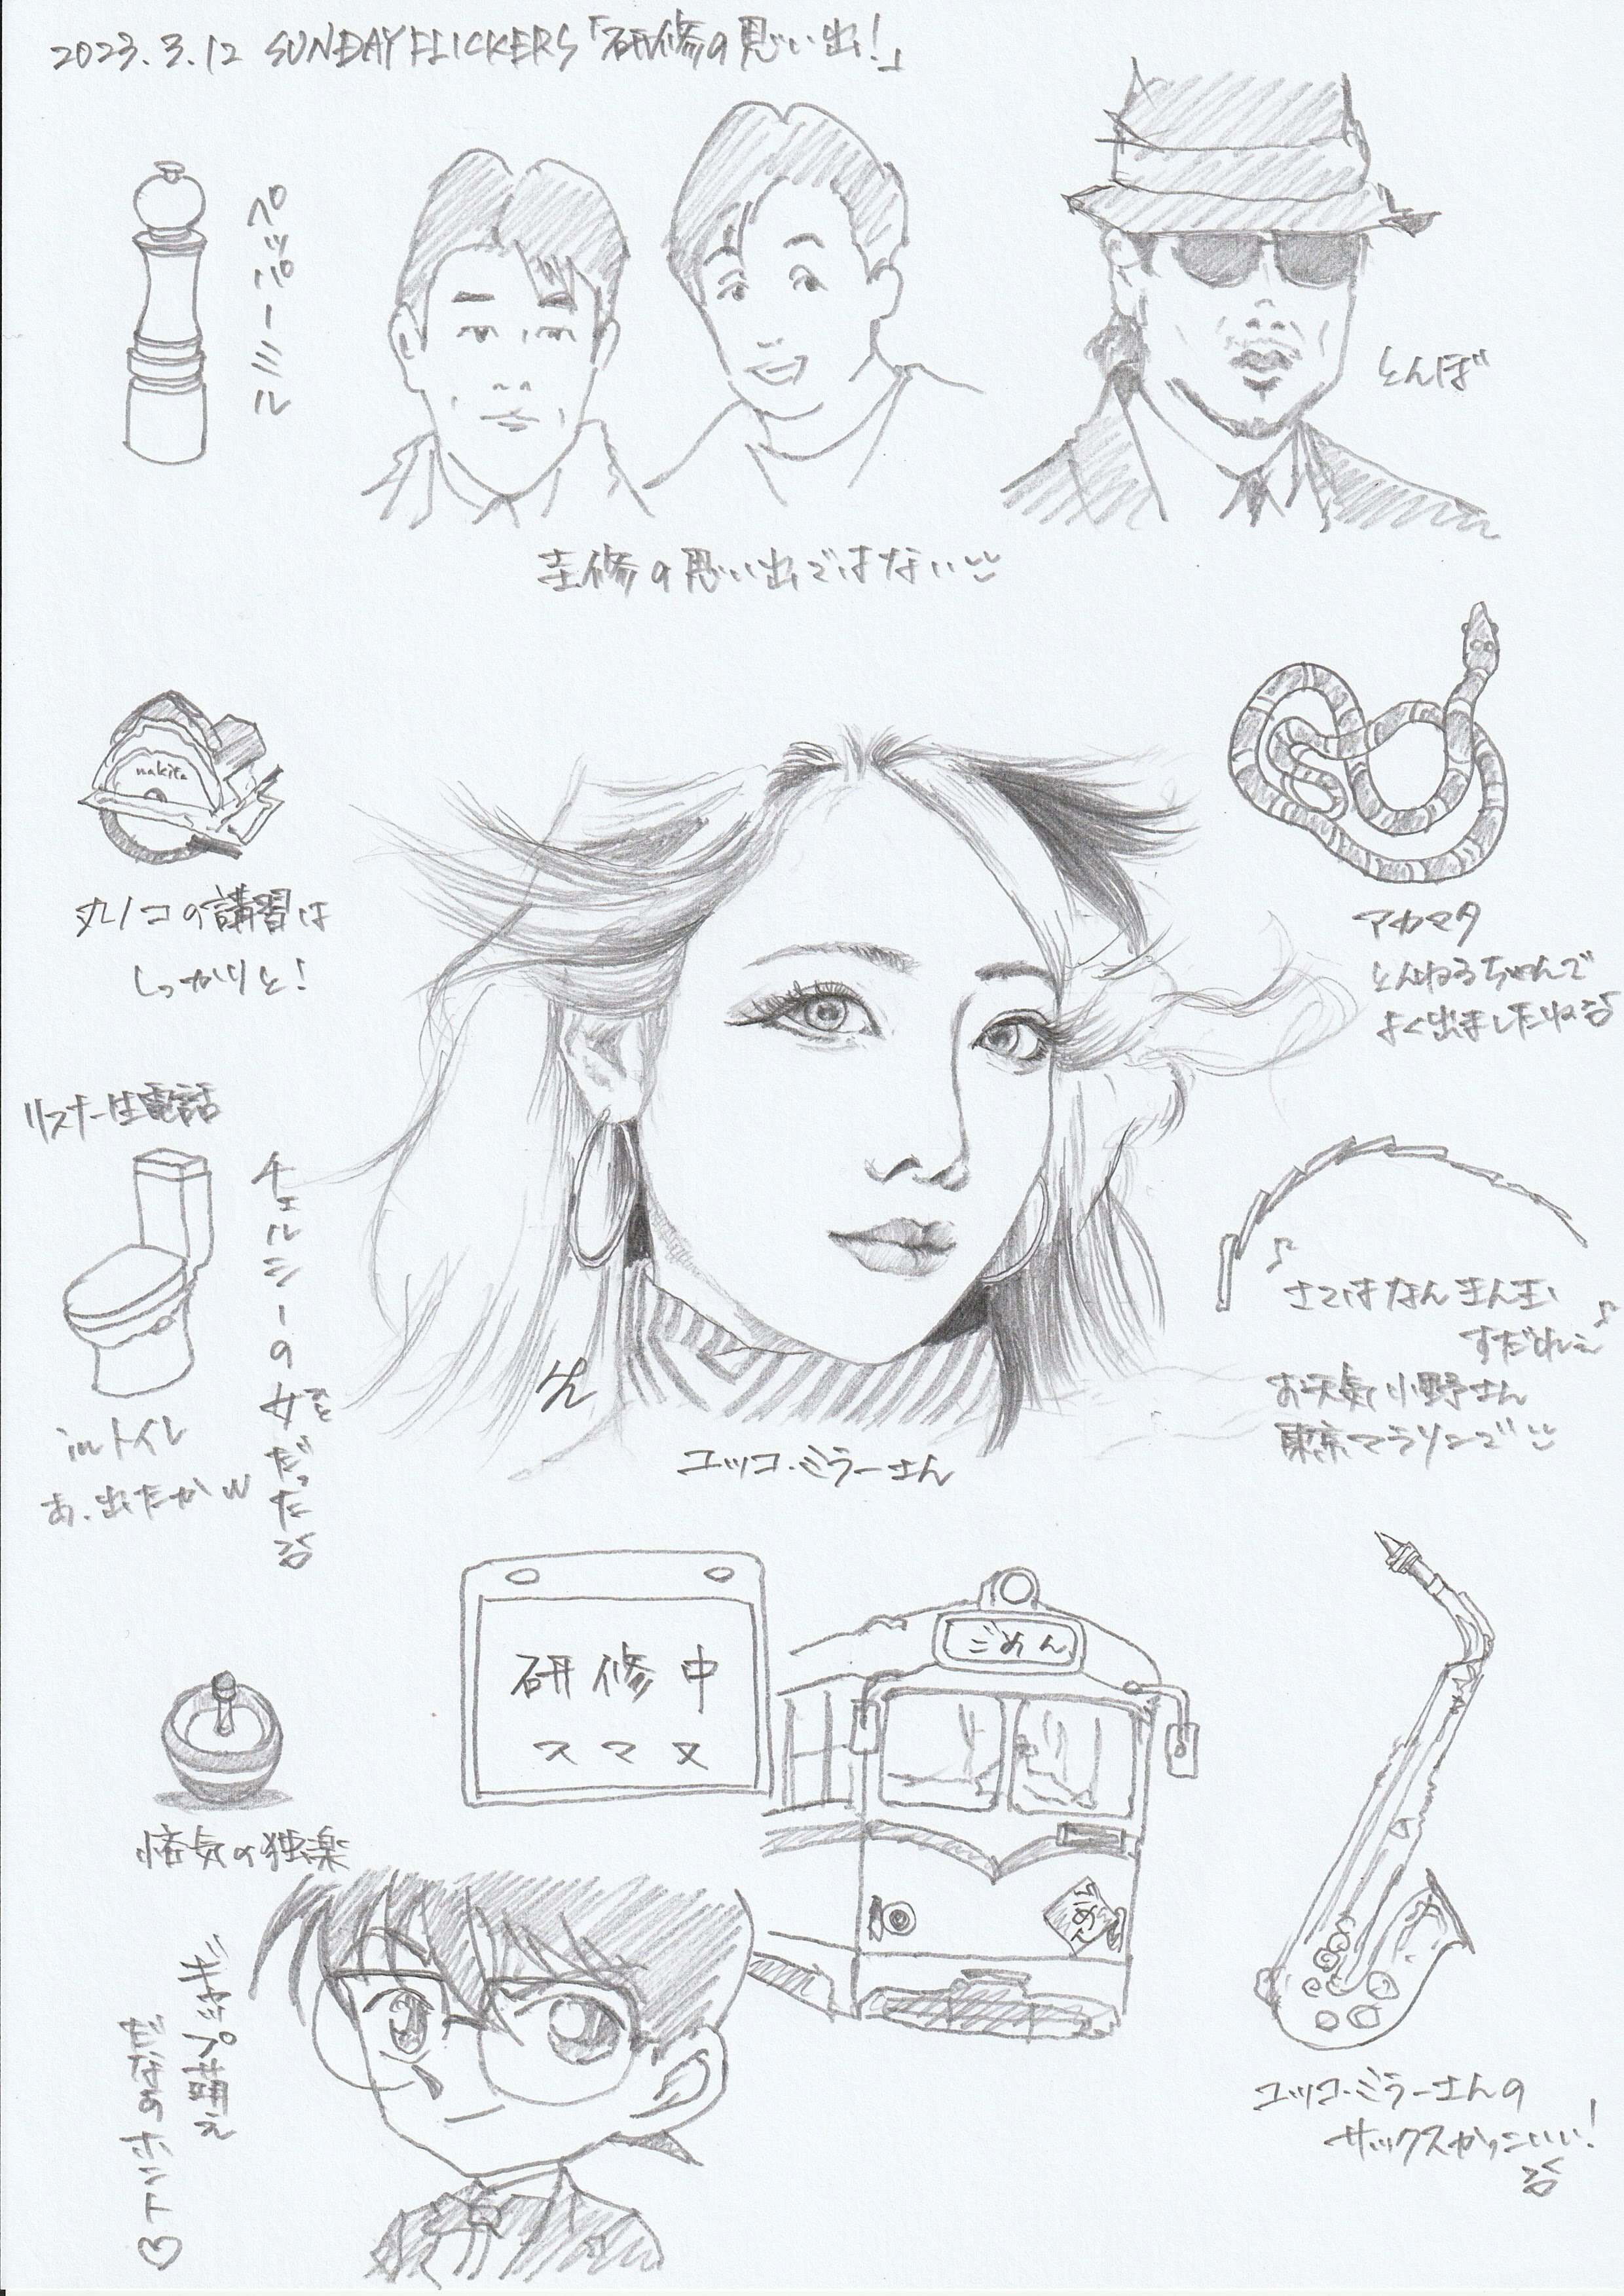 2023.3.12 SUNDAY FLICKERS「研修の思い出!」
ペッパーミル
とんぼ
圭修の思い出ではない
makita
丸ノコの講習は
しっかりと!
アカマタ
とんねるちゃんで
よく出ましたね
リスナー生電話
チェルシーの女だった
inトイレ
あ、出たかw
♪さてはなんきん玉
すだれ♪
お天気小野さん
東京マラソンで
ユッコ・ミラーさん
研修中
スマヌ
ごめん
ごめん
悋気の独楽
ユッコ・ミラーさんの
サックスかっこいい!